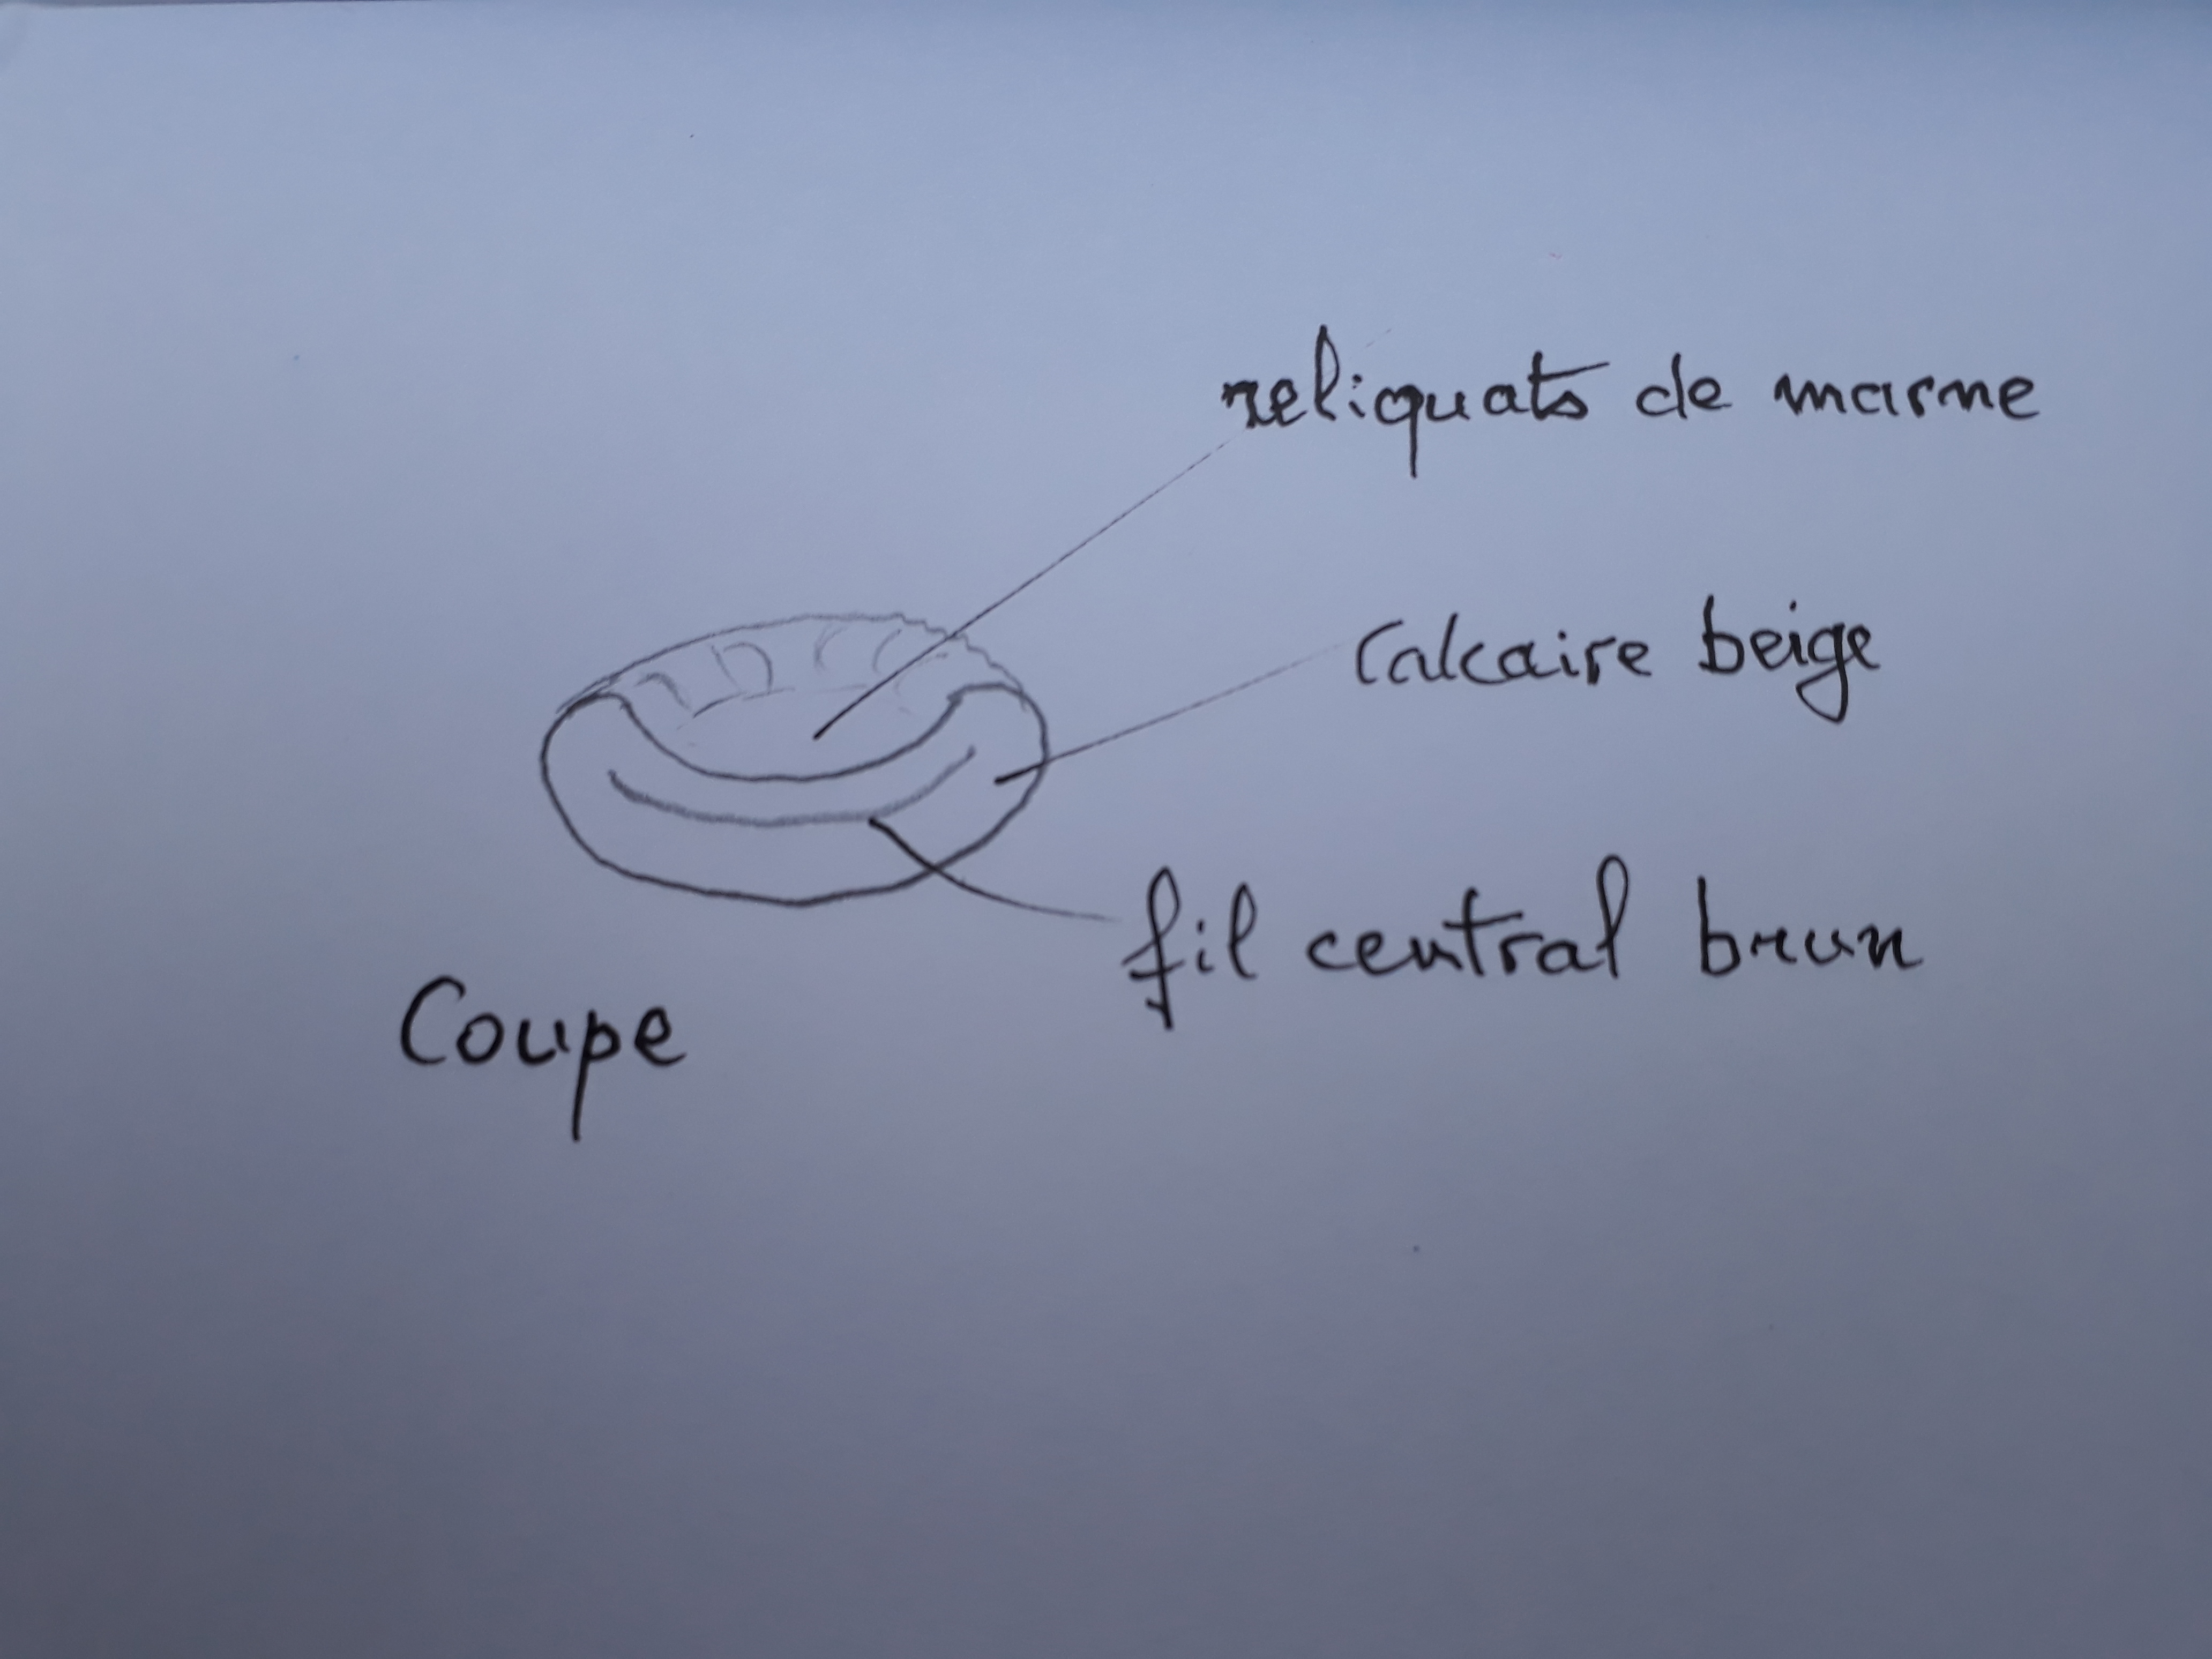 reliquats de marne
Calcaire beige
fil central brun
Coupe